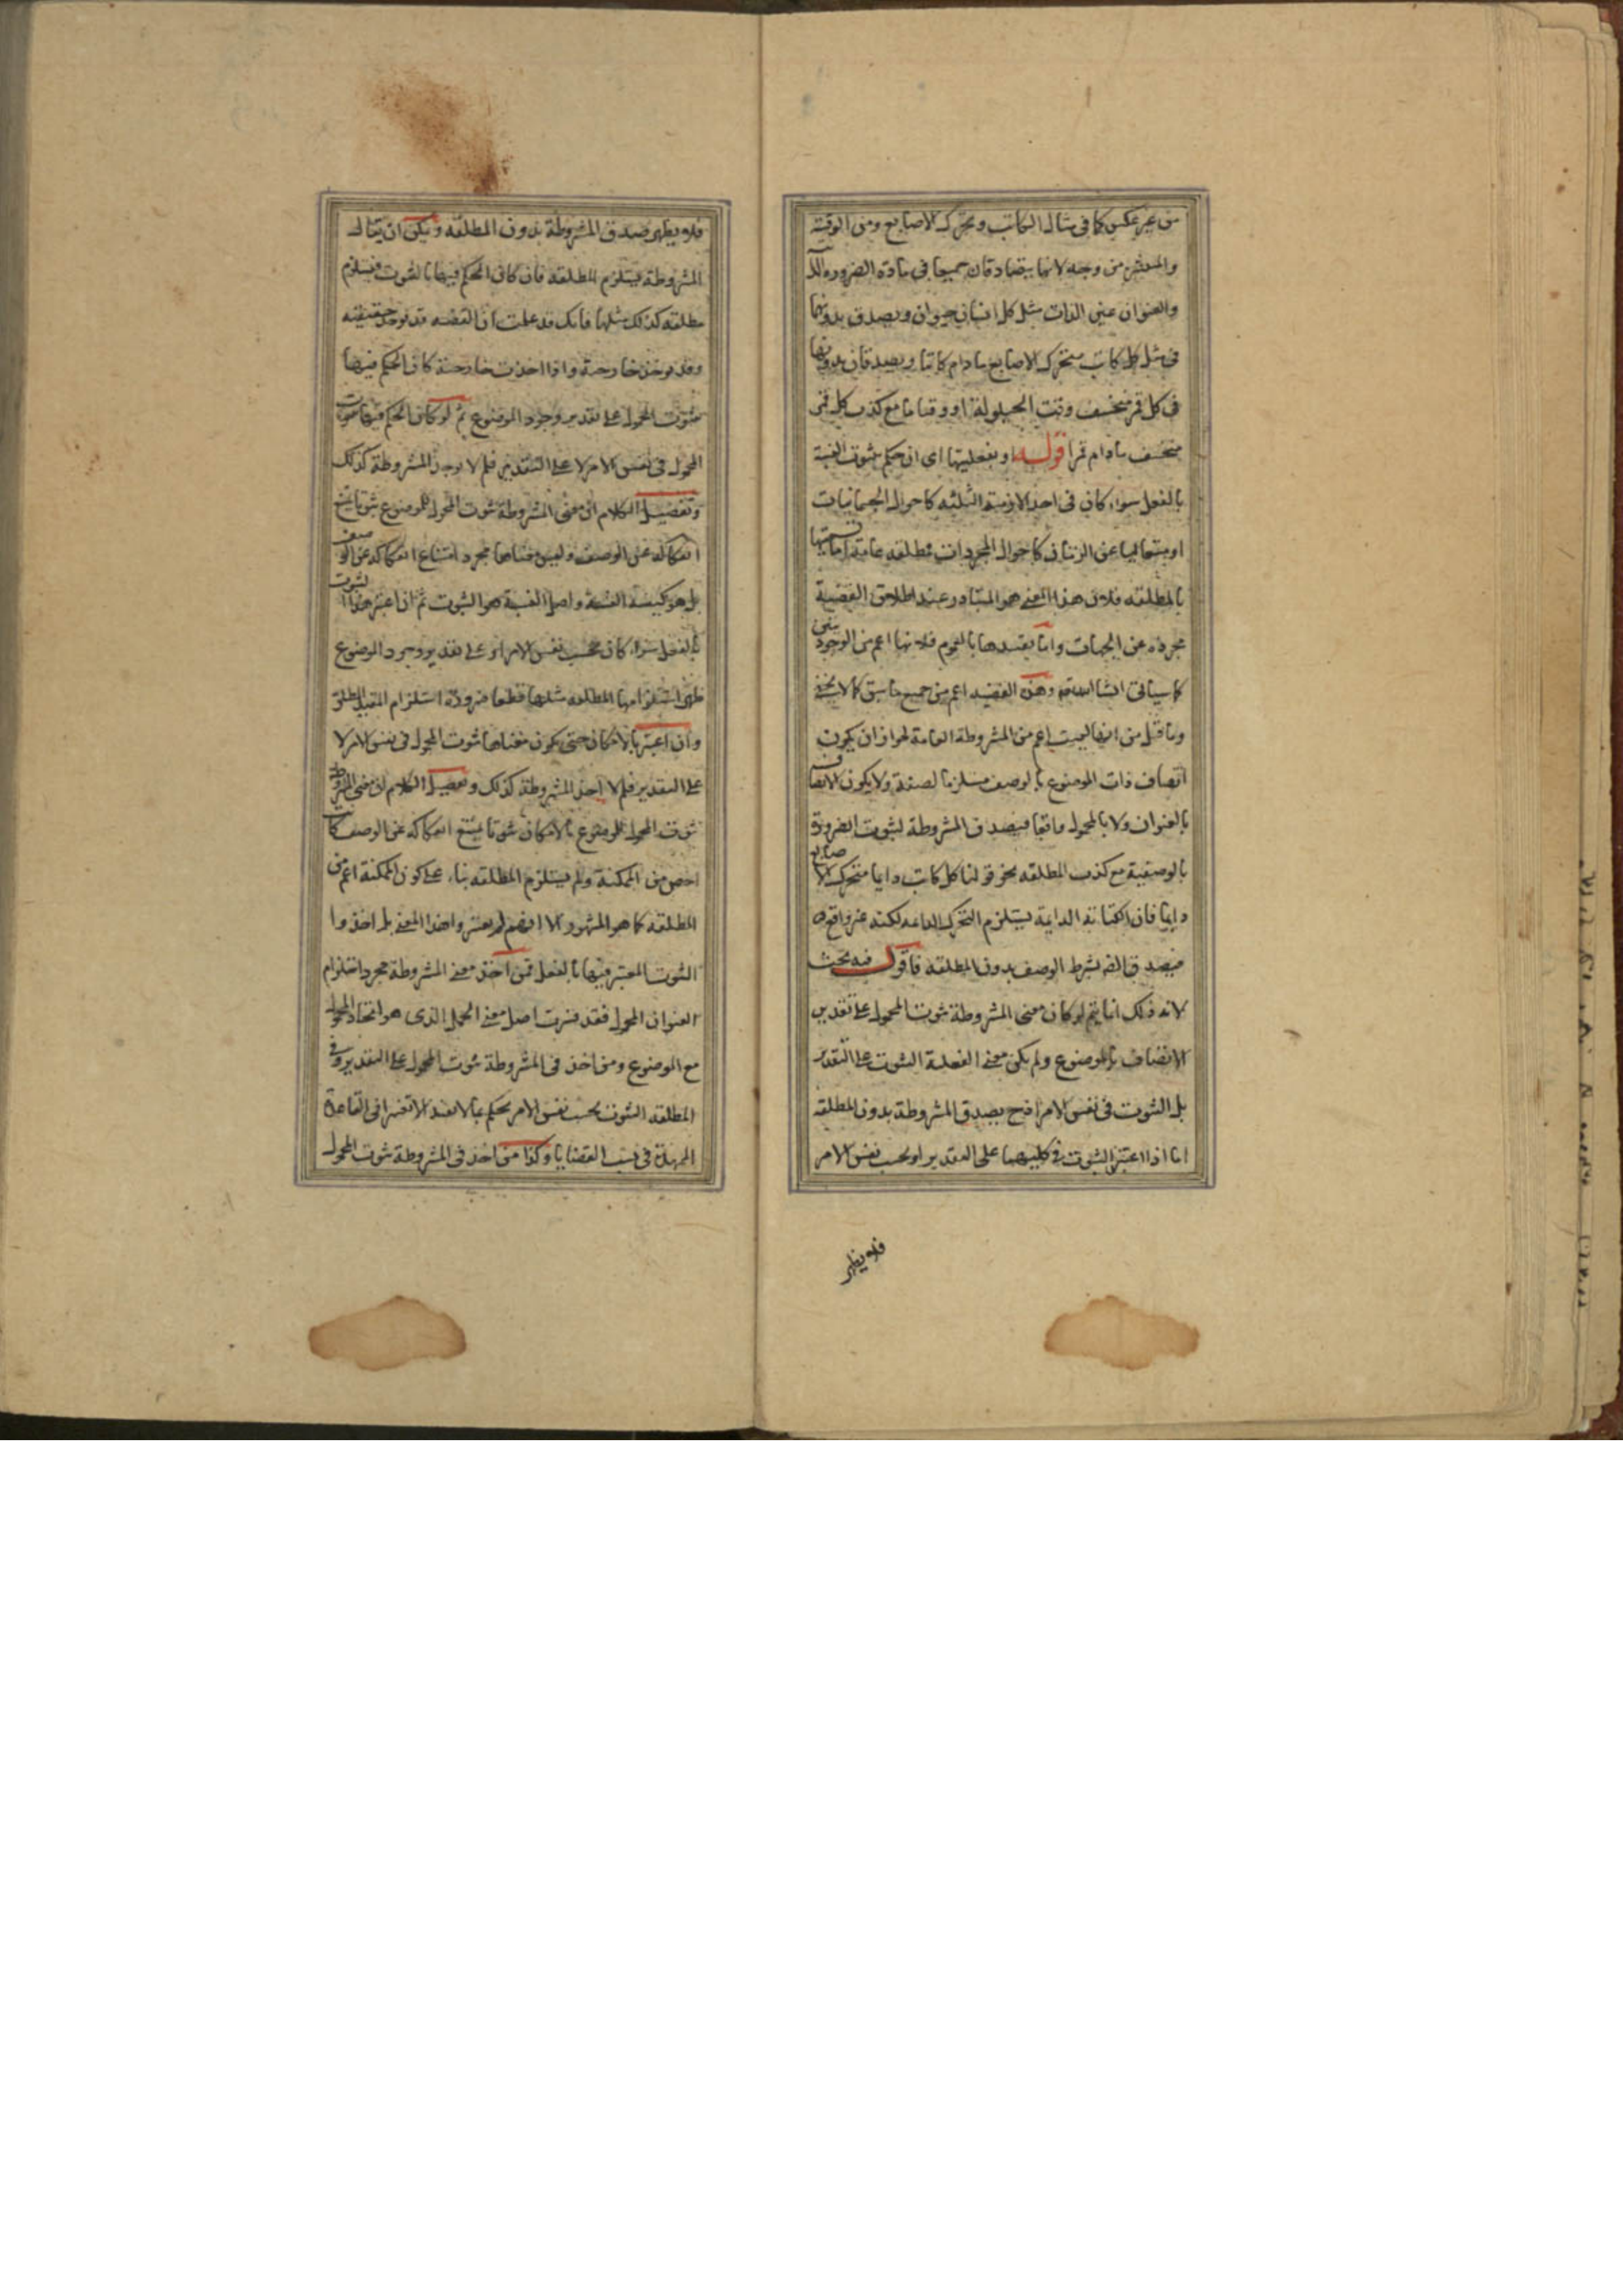 من غير عكس كما في مثال الكاتب وتحرك الاصابع ومن الوقتية
والمنتشرة من وجه لانهما يتصادقان جميعا في مادة الضرورة
والعنوان عين الذات مثل كل انسان حيوان ويصدق بدونهما
في مثل كل كاتب متحرك الاصابع ما دام كاتبا ويصدقان بدونها
في كل قمر منخسف وقت الحيلولة او وقتا ما مع كذب كل قمر
منخسف ما دام قمرا قوله او بفعليتها اى ان حكم بثبوت النسبة
بالفعل سواء كان في احد الازمنة الثلثه كاحوال الجسمانيات
او متعاليا عن الزمان كاحوال المجردات مطلقه عامة اما تسميتها
بالمطلقه فلان هذا المعنى هو المتبادر عند اطلاق القضية
مجرده عن الجهات واما تقييدها بالعموم فلانها اعم من الوجوديتين
كما سيأتي انشا الله تعه وهذه القضيه اعم من جميع ما سبق كما لا يخفى
وما قيل من انها ليست اعم من المشروطة العامة لجواز ان يكون
اتصاف ذات الموضوع بالوصف مستلزما لصفة ولا يكون الاتصاف
بالعنوان ولا بالمحمول واقعا فيصدق المشروطة لثبوت الضرورة
بالوصفية مع كذب المطلقه نحو قولنا كل كاتب دايما متحرك الاصابع
دايما فان الكتابة الدايمة يستلزم التحرك الدايم لكنه غير واقع
فيصدق بشرط الوصف بدون المطلقه فاقول فيه بحث
لانه ذلك انما يتم لو كان معنى المشروطة ثبوت المحمول على تقدير
الاتصاف بالموضوع ولم يكن معنى الفعلية الثبوت على التقدير
بل الثبوت في نفس الامر اذ ح يصدق المشروطة بدون المطلقه
اما اذا اعتبر الثبوت في كليهما على التقدير او بحسب نفس الامر
فلا يظهر
فلا يظهر صدق المشروطة بدون المطلقه ويمكن ان يقال
المشروطة يستلزم المطلقه فان كان الحكم فيها بالثبوت فيستلزم
مطلقه كذلك مثلها فانك قد علمت ان القضيه قد توخذ حقيقيه
وقد توخذ خارجية واذا اخذت خارجية كان الحكم فيها
بثبوت المحمول على تقدير وجود الموضوع ثم لو كان الحكم فيها بثبوت
المحمول في نفس الامر لا على التقدير فلم لا يوجد المشروطة كذلك
وتفصيل الكلام ان معنى المشروطة ثبوت المحمول للموضوع ثبوتا يمتنع
انفكاكه عن الوصف وليس معناها مجرد امتناع انفكاكه عن الوصف
بل هو كيفية النسبة واصل النسبة هو الثبوت ثم ان اعتبر هذا الثبوت
بالفعل سواء كان بحسب نفس الامر او على تقدير وجود الموضوع
ظهر استلزامها المطلقه مثلها قطعا ضرورة استلزام المقيد المطلق
وان اعتبر بالامكان حتى يكون معناها ثبوت المحمول في نفس الامر لا
على التقدير فلم لا اخذ المشروطة كذلك وتفصيل الكلام ان معنى المشروطة
ثبوت المحمول للموضوع بالامكان ثبوتا يمتنع انفكاكه عن الوصف كانت
اخص من الممكنة ولم يستلزم المطلقه بناء على كون الممكنة اعم من
المطلقه كما هو المشهور الا انهم لم يعتبروا هذا المعنى بل اخذوا
الثبوت المعتبر فيها بالفعل فمن اخذ معنى المشروطة مجرد استلزام
العنوان المحمول فقد اصل معنى الحمل الذي هو اتحاد المحمول
مع الموضوع ومن اخذ في المشروطة ثبوت المحمول على التقدير وفي
المطلقه الثبوت بحسب نفس الامر يحكم في القاعدة
الممهدة في نسب القضايا وكذا من اخذ في المشروطة ثبوت المحمول